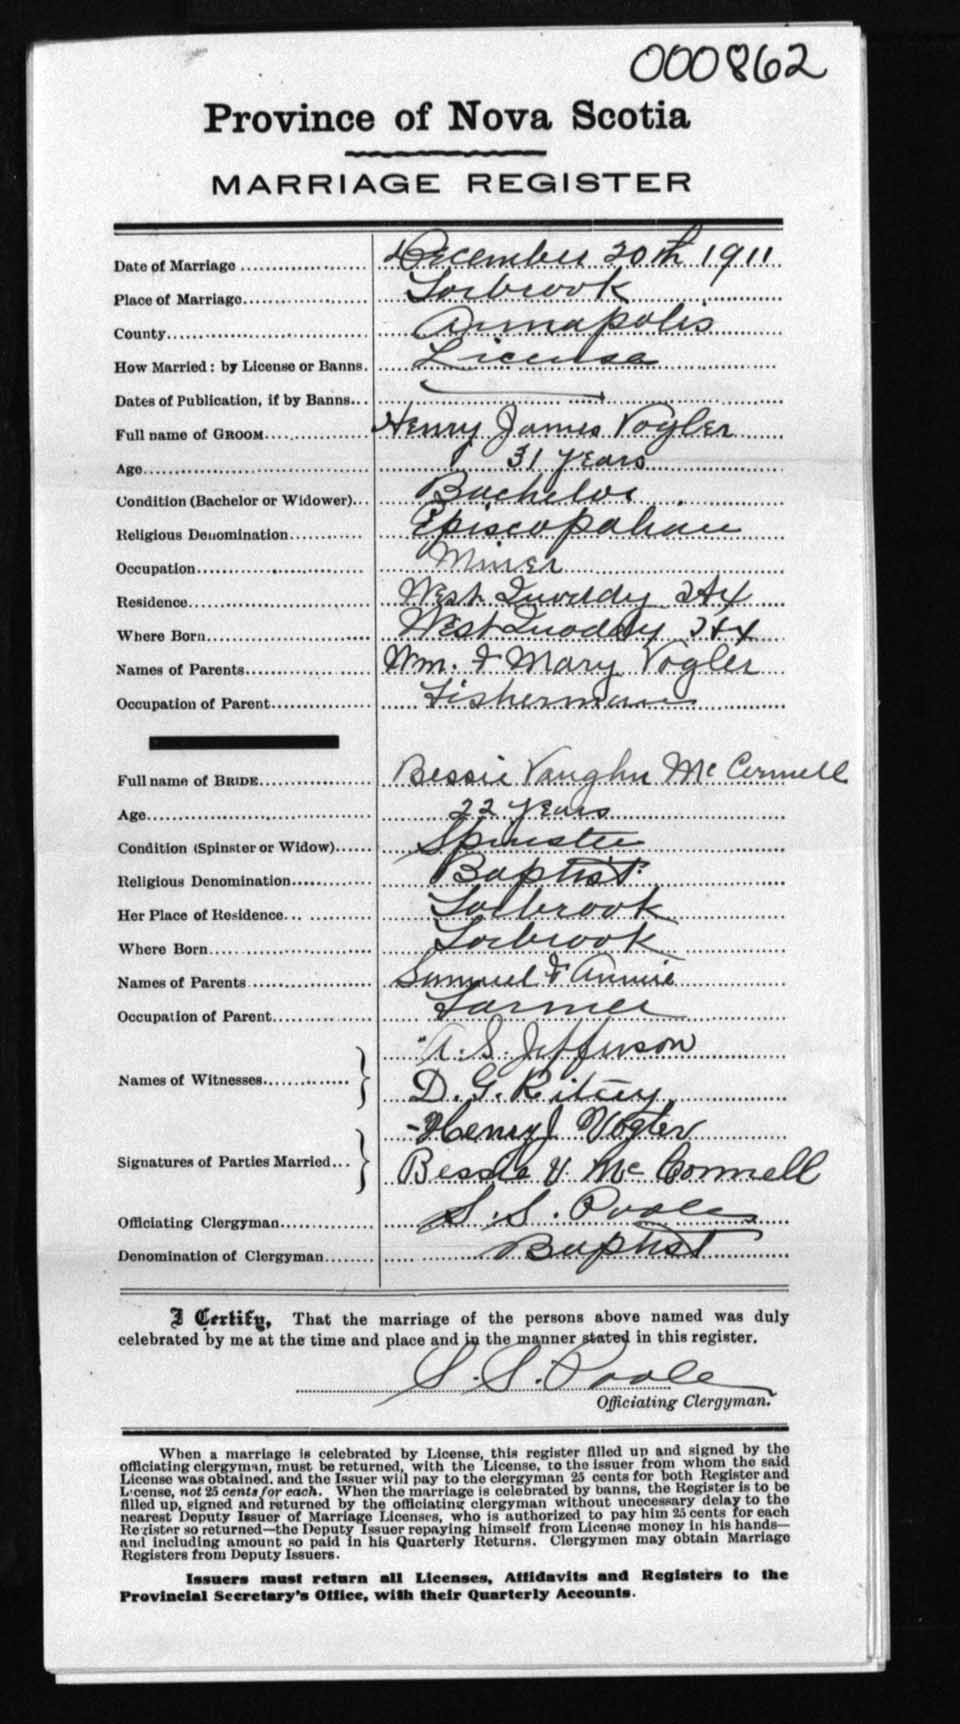 000862
Province of Nova Scotia
MARRIAGE REGISTER
Date of Marriage December 20th 1911
Place of Marriage Torbrook
County Annapolis
How Married: by License or Banns. License
Dates of Publication, if by Banns
Full name of GROOM Henry James Vogler
Age 31 years
Condition (Bachelor or Widower) Bachelor
Religious Denomination Episcopalian
Occupation Miner
Residence West Quoddy Hfx
Where Born West Quoddy Hfx
Names of Parents Wm. & Mary Vogler
Occupation of Parent Fisherman
Full name of BRIDE Bessie Vaughn McConnell
Age 22 years
Condition (Spinster or Widow) Spinster
Religious Denomination Baptist
Her Place of Residence Torbrook
Where Born Torbrook
Names of Parents Samuel & Annie
Occupation of Parent Farmer
A. S. Jefferson
Names of Witnesses
D. G. Ritcey
Henry J Vogler
Signatures of Parties Married
Bessie V. McConnell
Officiating Clergyman S. S. Poole
Denomination of Clergyman Baptist
I Certify, That the marriage of the persons above named was duly
celebrated by me at the time and place and in the manner stated in this register.
S. S. Poole
Officiating Clergyman.
When a marriage is celebrated by License, this register filled up and signed by the
officiating clergyman, must be returned, with the License, to the issuer from whom the said
License was obtained, and the Issuer will pay to the clergyman 25 cents for both Register and
License, not 25 cents for each. When the marriage is celebrated by banns, the Register is to be
filled up, signed and returned by the officiating clergyman without unnecessary delay to the
nearest Deputy Issuer of Marriage Licenses, who is authorized to pay him 25 cents for each
Register so returned—the Deputy Issuer repaying himself from License money in his hands—
and including amount so paid in his Quarterly Returns. Clergymen may obtain Marriage
Registers from Deputy Issuers.
Issuers must return all Licenses, Affidavits and Registers to the
Provincial Secretary's Office, with their Quarterly Accounts.